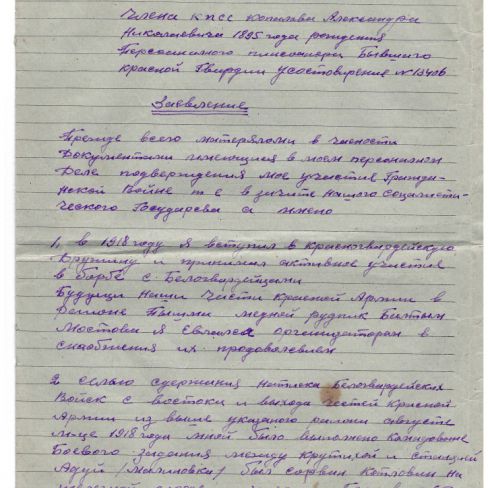 Члена КПСС Копылова Александра
Николаевича 1895 года рождения
Персонального пенсионера Бывшего
красной Гвардии удостоверение № 13406
Заявление
Прежде всего матерялами в часности
Документами имеющися в моем персональном
Деле подтверждения мое участия Граждан-
нской Войне т е в защите нашего Социалисти-
ческого Государсва а имено
1, в 1918 году я вступил в красногвардейскую
Дружину и принимал активное участие
в борбе с Белогвардейцами
Будучи наши Части Красной Армии в
Регионе Пышмы медней рудник
Мостовая я Евлялся организатором в
снабжения их продовольвием
2 целью сдержания натиска Белогвардейских
Войск с востока и выхода частей Красной
Армии из выше указаного района августе
м-це 1918 года мной было выполнено
Боевого задания между Крутихой и станцией
Адуй /малиновка/ был сорван Котлован на